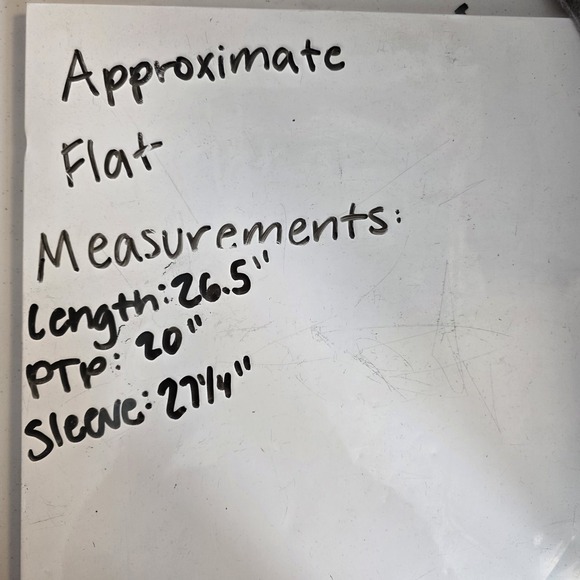 Approximate
Flat
Measurements:
Length: 26.5"
PTP: 20"
Sleeve: 27 1/4"